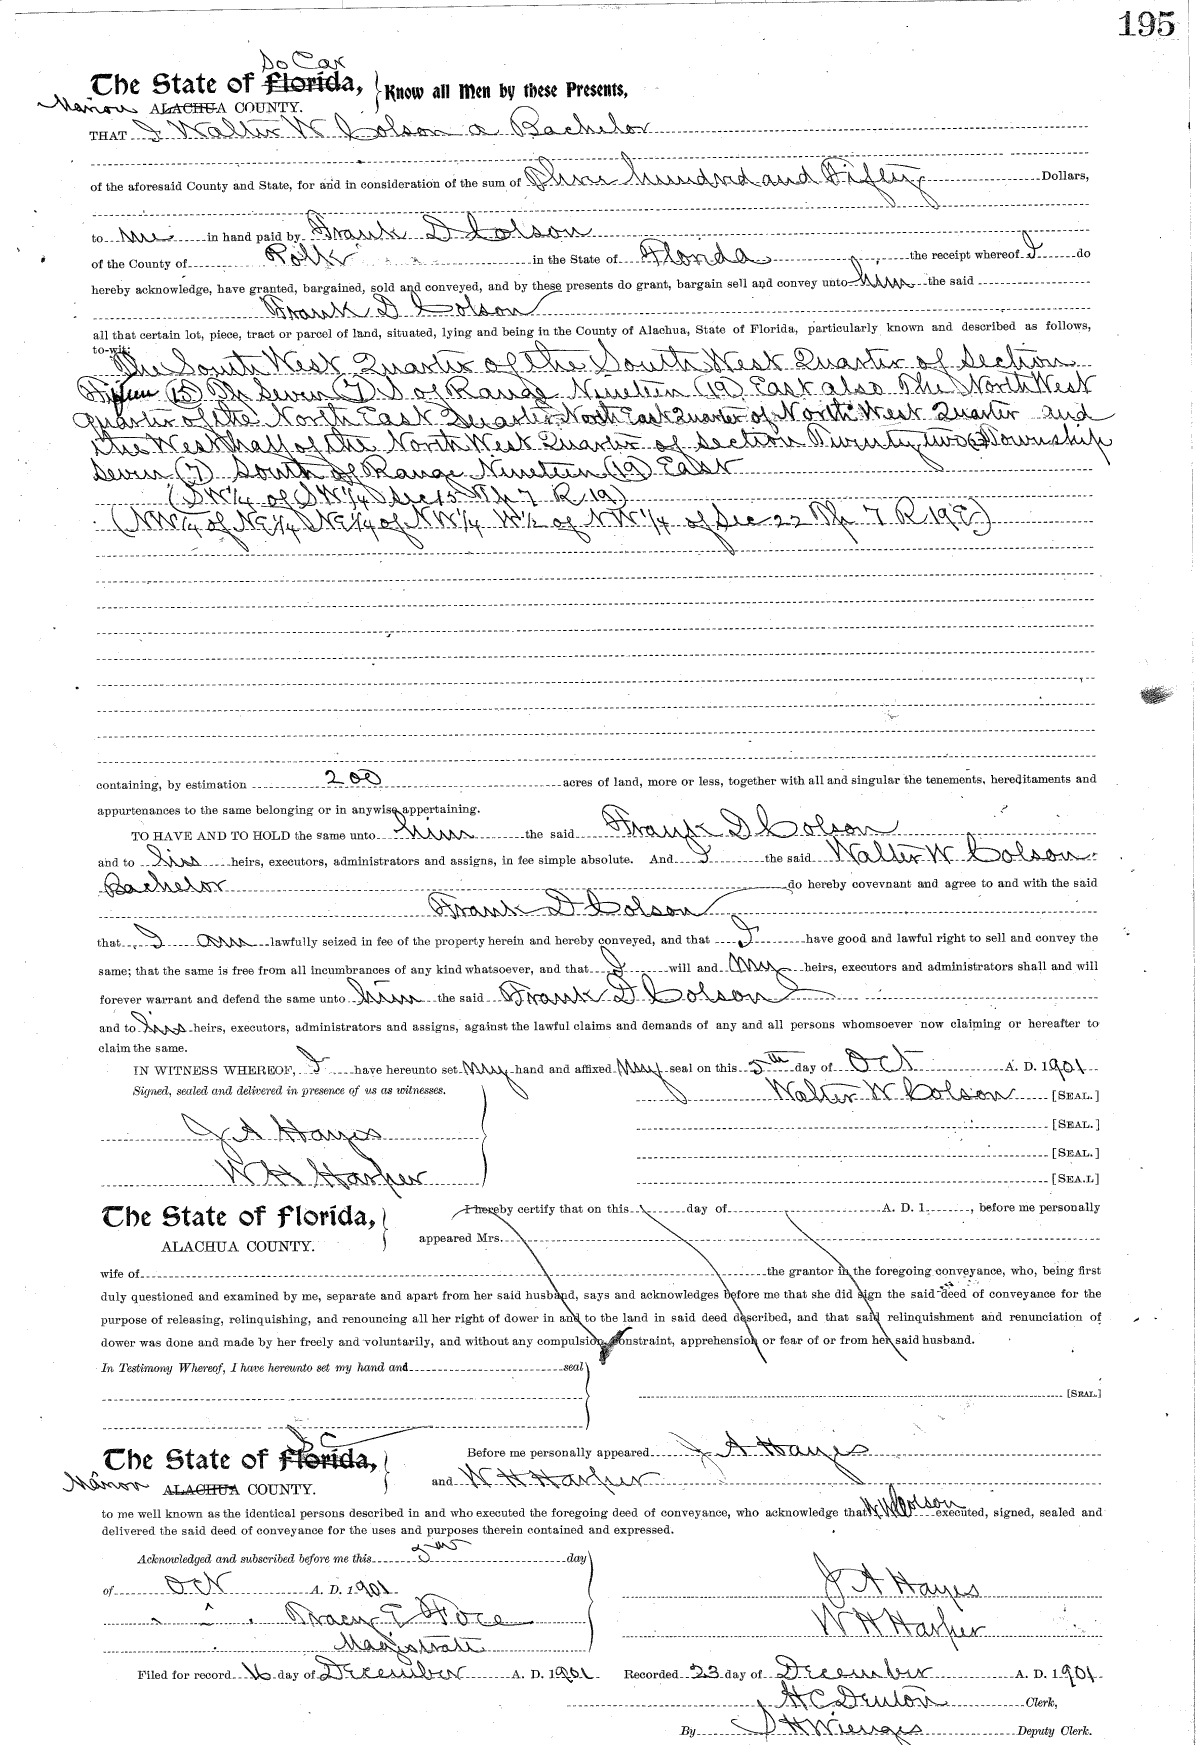 195
So Car
The State of Florida, Know all Men by these Presents,
Marion ALACHUA COUNTY.
THAT I Walter W Colson a Bachelor
of the aforesaid County and State, for and in consideration of the sum of Three hundred and Fifty Dollars,
to me in hand paid by Frank D Colson
of the County of Polk in the State of Florida the receipt whereof I do
hereby acknowledge, have granted, bargained, sold and conveyed, and by these presents do grant, bargain sell and convey unto him the said
Frank D Colson
all that certain lot, piece, tract or parcel of land, situated, lying and being in the County of Alachua, State of Florida, particularly known and described as follows,
to-wit:
The South West Quarter of the South West Quarter of Section
Fifteen (15) Th Seven (7) S of Range Nineteen (19) East also The North West
quarter of the North East Quarter North East Quarter of North West Quarter and
the West half of the North West Quarter of section Twenty two Township
Seven (7) South of Range Nineteen (19) East
(SW1/4 of SW1/4) Sec 15 Th 7 R 19)
(NW1/4 of NE1/4) NE1/4 of NW1/4 W1/2 of NW1/4 of Sec 22 Th 7 R 19E)
containing, by estimation 200 acres of land, more or less, together with all and singular the tenements, hereditaments and
appurtenances to the same belonging or in anywise appertaining.
TO HAVE AND TO HOLD the same unto him the said Frank D Colson
and to his heirs, executors, administrators and assigns, in fee simple absolute. And I the said Walter W Colson
Bachelor do hereby covevnant and agree to and with the said
Frank D Colson
that I am lawfully seized in fee of the property herein and hereby conveyed, and that I have good and lawful right to sell and convey the
same; that the same is free from all incumbrances of any kind whatsoever, and that I will and My heirs, executors and administrators shall and will
forever warrant and defend the same unto him the said Frank D Colson
and to his heirs, executors, administrators and assigns, against the lawful claims and demands of any and all persons whomsoever now claiming or hereafter to
claim the same.
IN WITNESS WHEREOF, I have hereunto set My hand and affixed My seal on this 5th day of Oct A. D. 1901
Signed, sealed and delivered in presence of us as witnesses. Walter W Colson [SEAL.]
[SEAL.]
J A Hayes
[SEAL.]
W H Harper [SEA.L]
The State of Florida, I hereby certify that on this day of A. D. 1 , before me personally
ALACHUA COUNTY. appeared Mrs.
wife of the grantor in the foregoing conveyance, who, being first
duly questioned and examined by me, separate and apart from her said husband, says and acknowledges before me that she did sign the said deed of conveyance for the
purpose of releasing, relinquishing, and renouncing all her right of dower in and to the land in said deed described, and that said relinquishment and renunciation of
dower was done and made by her freely and voluntarily, and without any compulsion, constraint, apprehension or fear of or from her said husband.
In Testimony Whereof, I have hereunto set my hand and seal
[SEAL.]
S C
The State of Florida, Before me personally appeared J A Hayes
Marion ALACHUA COUNTY. and W H Harper
to me well known as the identical persons described in and who executed the foregoing deed of conveyance, who acknowledge that W W Colson executed, signed, sealed and
delivered the said deed of conveyance for the uses and purposes therein contained and expressed.
Acknowledged and subscribed before me this day
of Oct A. D. 1901 J A Hayes
W H Harper
Magistrate
Filed for record 16 day of December A. D. 1901 Recorded 23 day of December A. D. 1901
H C Denton Clerk,
By S H Wienges Deputy Clerk.